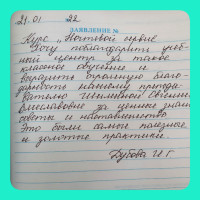 21.01 22
ЗАЯВЛЕНИЕ №
Курс Ногтевой сервис
Хочу поблагодарить учеб-
ный центр за такое
классное обучение и
выразить огромную благо-
дарность нашему препода-
вателю Евгении
Вячеславовне за ценные знания
советы и наставничество
Это были самые полезные
и золотые практики
Дубова И Г